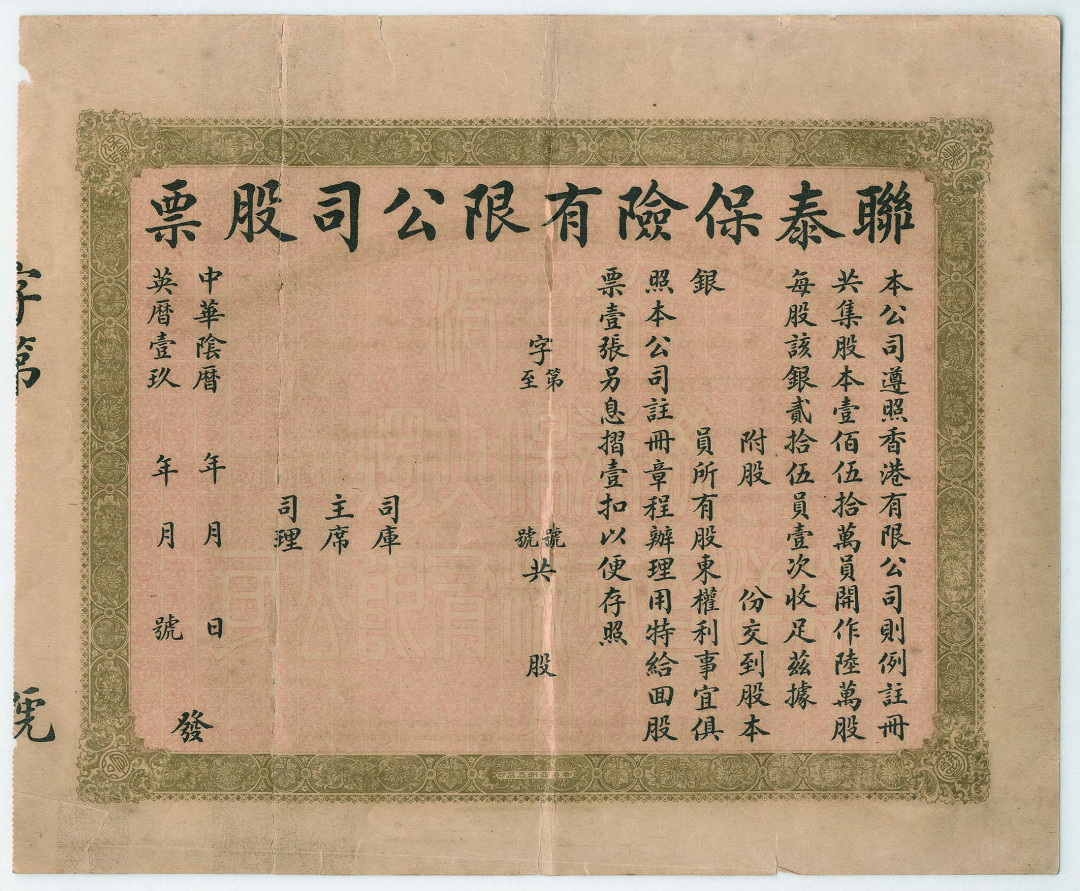 聯泰保險有限公司股票
本公司遵照香港有限公司則例註冊
共集股本壹佰伍拾萬員開作陸萬股
每股該銀貳拾伍員壹次收足茲據
附股 份交到股本
銀 員所有股東權利事宜俱
照本公司註冊章程辦理用特給囬股
票壹張另息摺壹扣以便存照
字 第 號 共 股
至 號
司庫
主席
司理
中華陰曆 年 月 日
英曆壹玖 年 月 號 發
字第 號